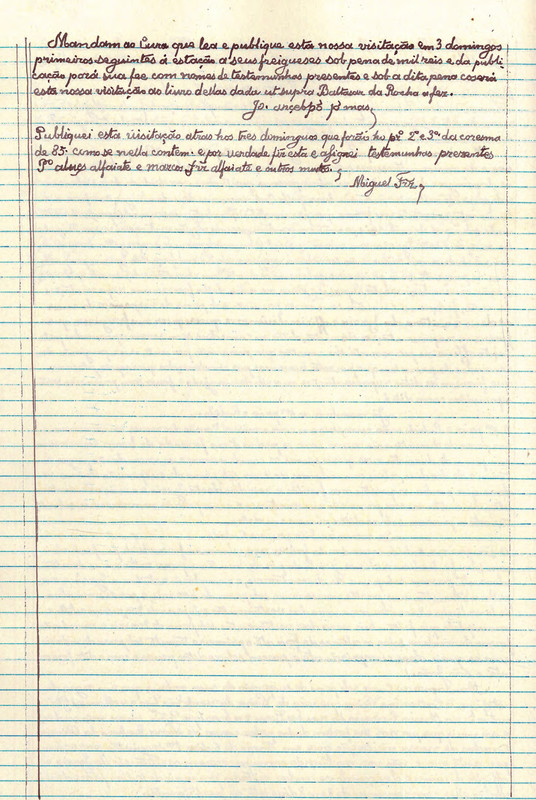 Mandam ao Cura que lea e publique esta nossa visitação em 3 domingos
primeiros seguintes á estação a seus freigueses sob pena de mil reis e da publi-
cação porá sua fee com nomes de testemunhas presentes e sob a dita pena coserá
esta nossa visitação ao livro dellas dada ut supra Baltasar da Rocha a fez.
Jo. arcebpõ primas
Publiquei esta visitação atras hos tres dominguos que forão ho prº 2º e 3º da coresma
de 85. como se nella contem. e por verdade fiz esta e asignei testemunhas presentes
alfaiate e marcos frz alfaiate e outros muitos.
Miguel Frz.